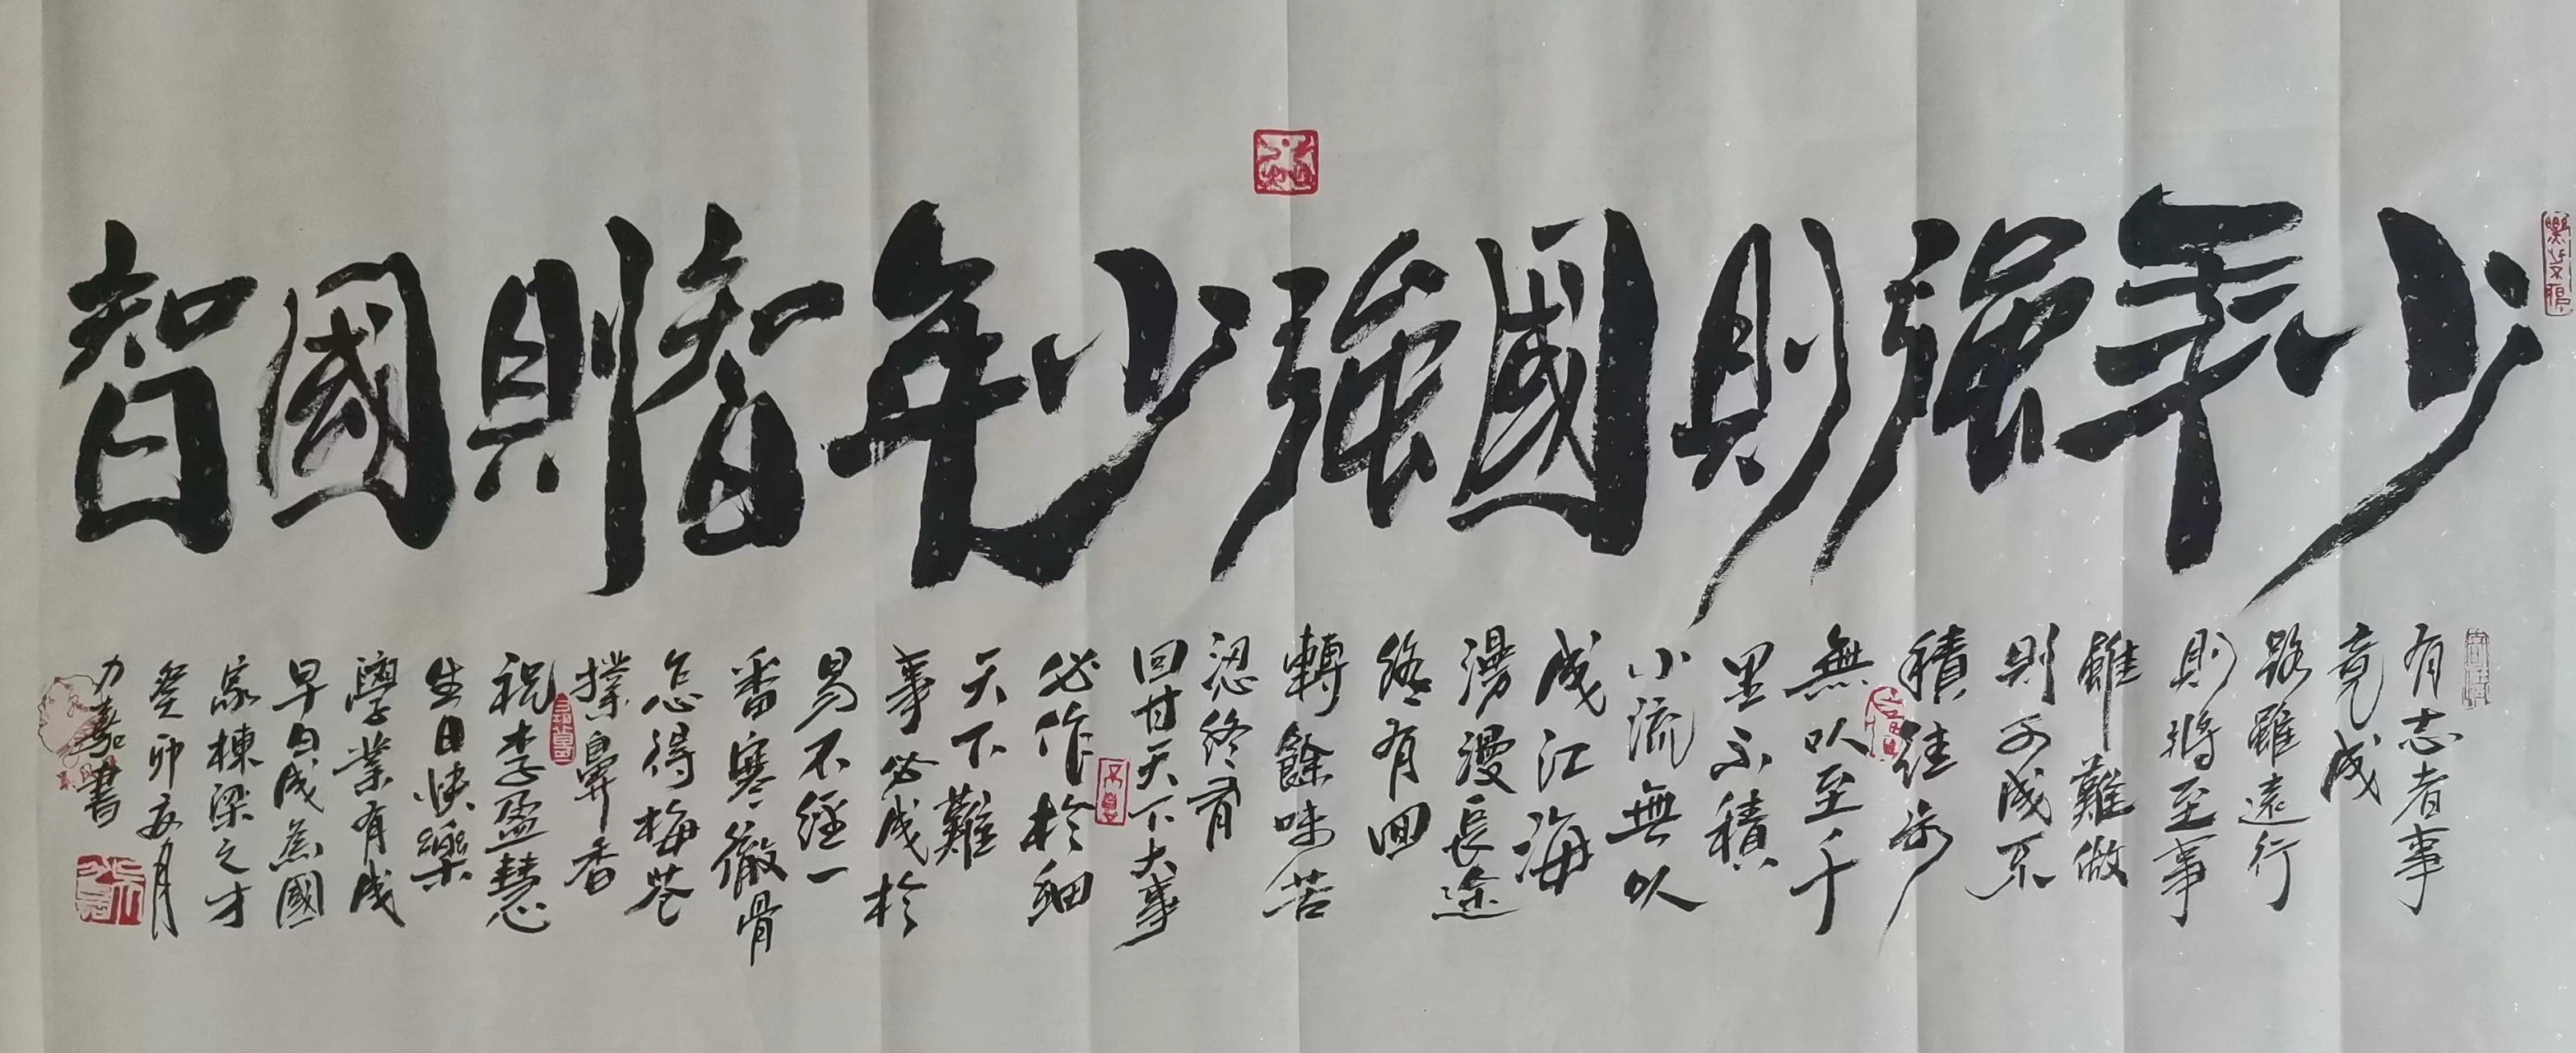 少年強則國強少年智則國智
有志者事
竟成
路雖遠行
則將至事
雖難做
則可成不
積跬步
無以至千
里不積
小流無以
成江海
漫漫長途
終有回
轉餘味苦
澀終有
回甘天下大事
必作於細
天下難
事必成於
易不經一
番寒徹骨
怎得梅花
撲鼻香
祝李盈慧
生日快樂
學業有成
早日成為國
家棟梁之才
癸卯亥月
力嘉書